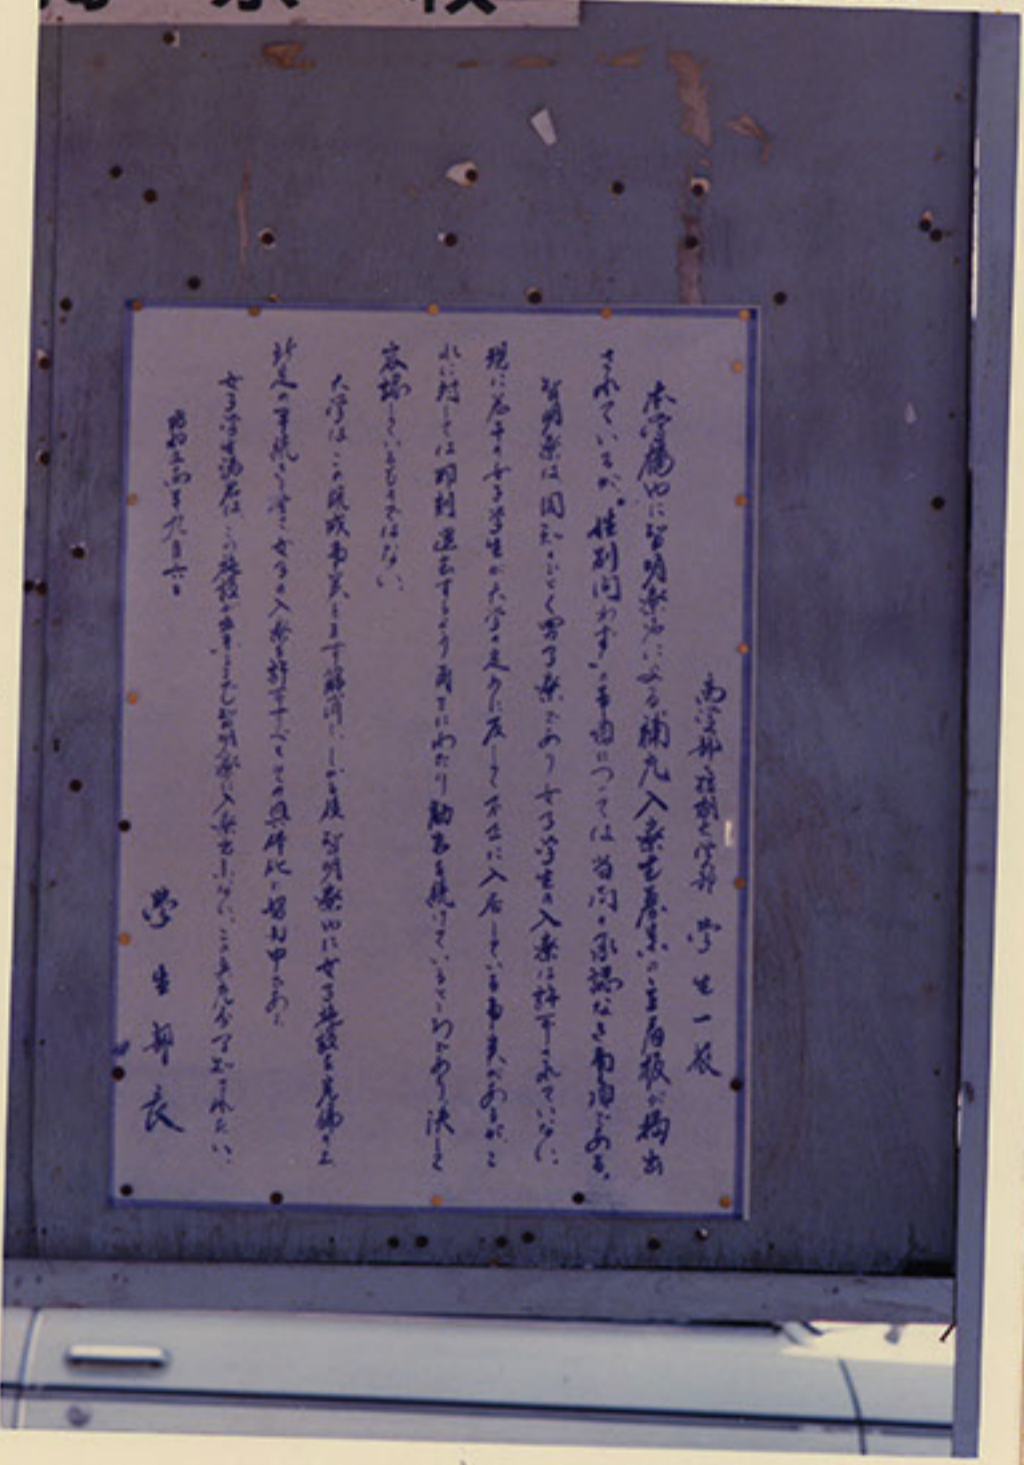 学生一般
本学構内に智明寮名による補充入寮生募集の立看板が掲出
されているが、"性別問わず"の事項については当局の承認なき事項である。
智明寮は周知のごとく男子寮であり女子学生の入寮は許可されていない。
現に若干の女子学生が大学の意に反して不正に入居している事実があるがこ
れに対しては即刻退去するよう再三にわたり勧告を続けているところであり決して
容認しているものではない。
大学はこの既成事実をまず解消し、しかる後智明寮内に女子施設を完備の上
所定の手続きを 女子の入寮を許可すべくその具体化に努力中である。
女子学生諸君は、この施設が 智明寮に入寮出来ない。この点充分了知されたい。
昭和 年九月六日
學生部長